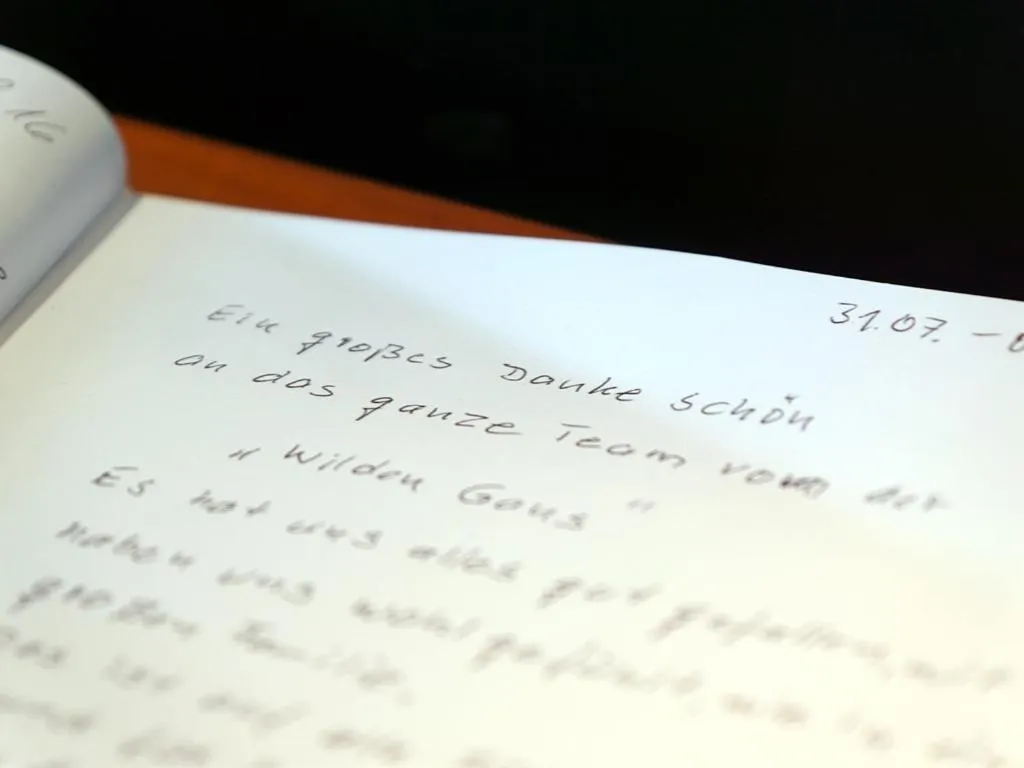 16
31.07. -
Ein großes Danke schön
an das ganze Team vom der
„ Wilden Gans "
Es hat uns alles gut gefallen, wir
haben uns wohl gefühlt, wie in
großen Familie.
Das ist auf